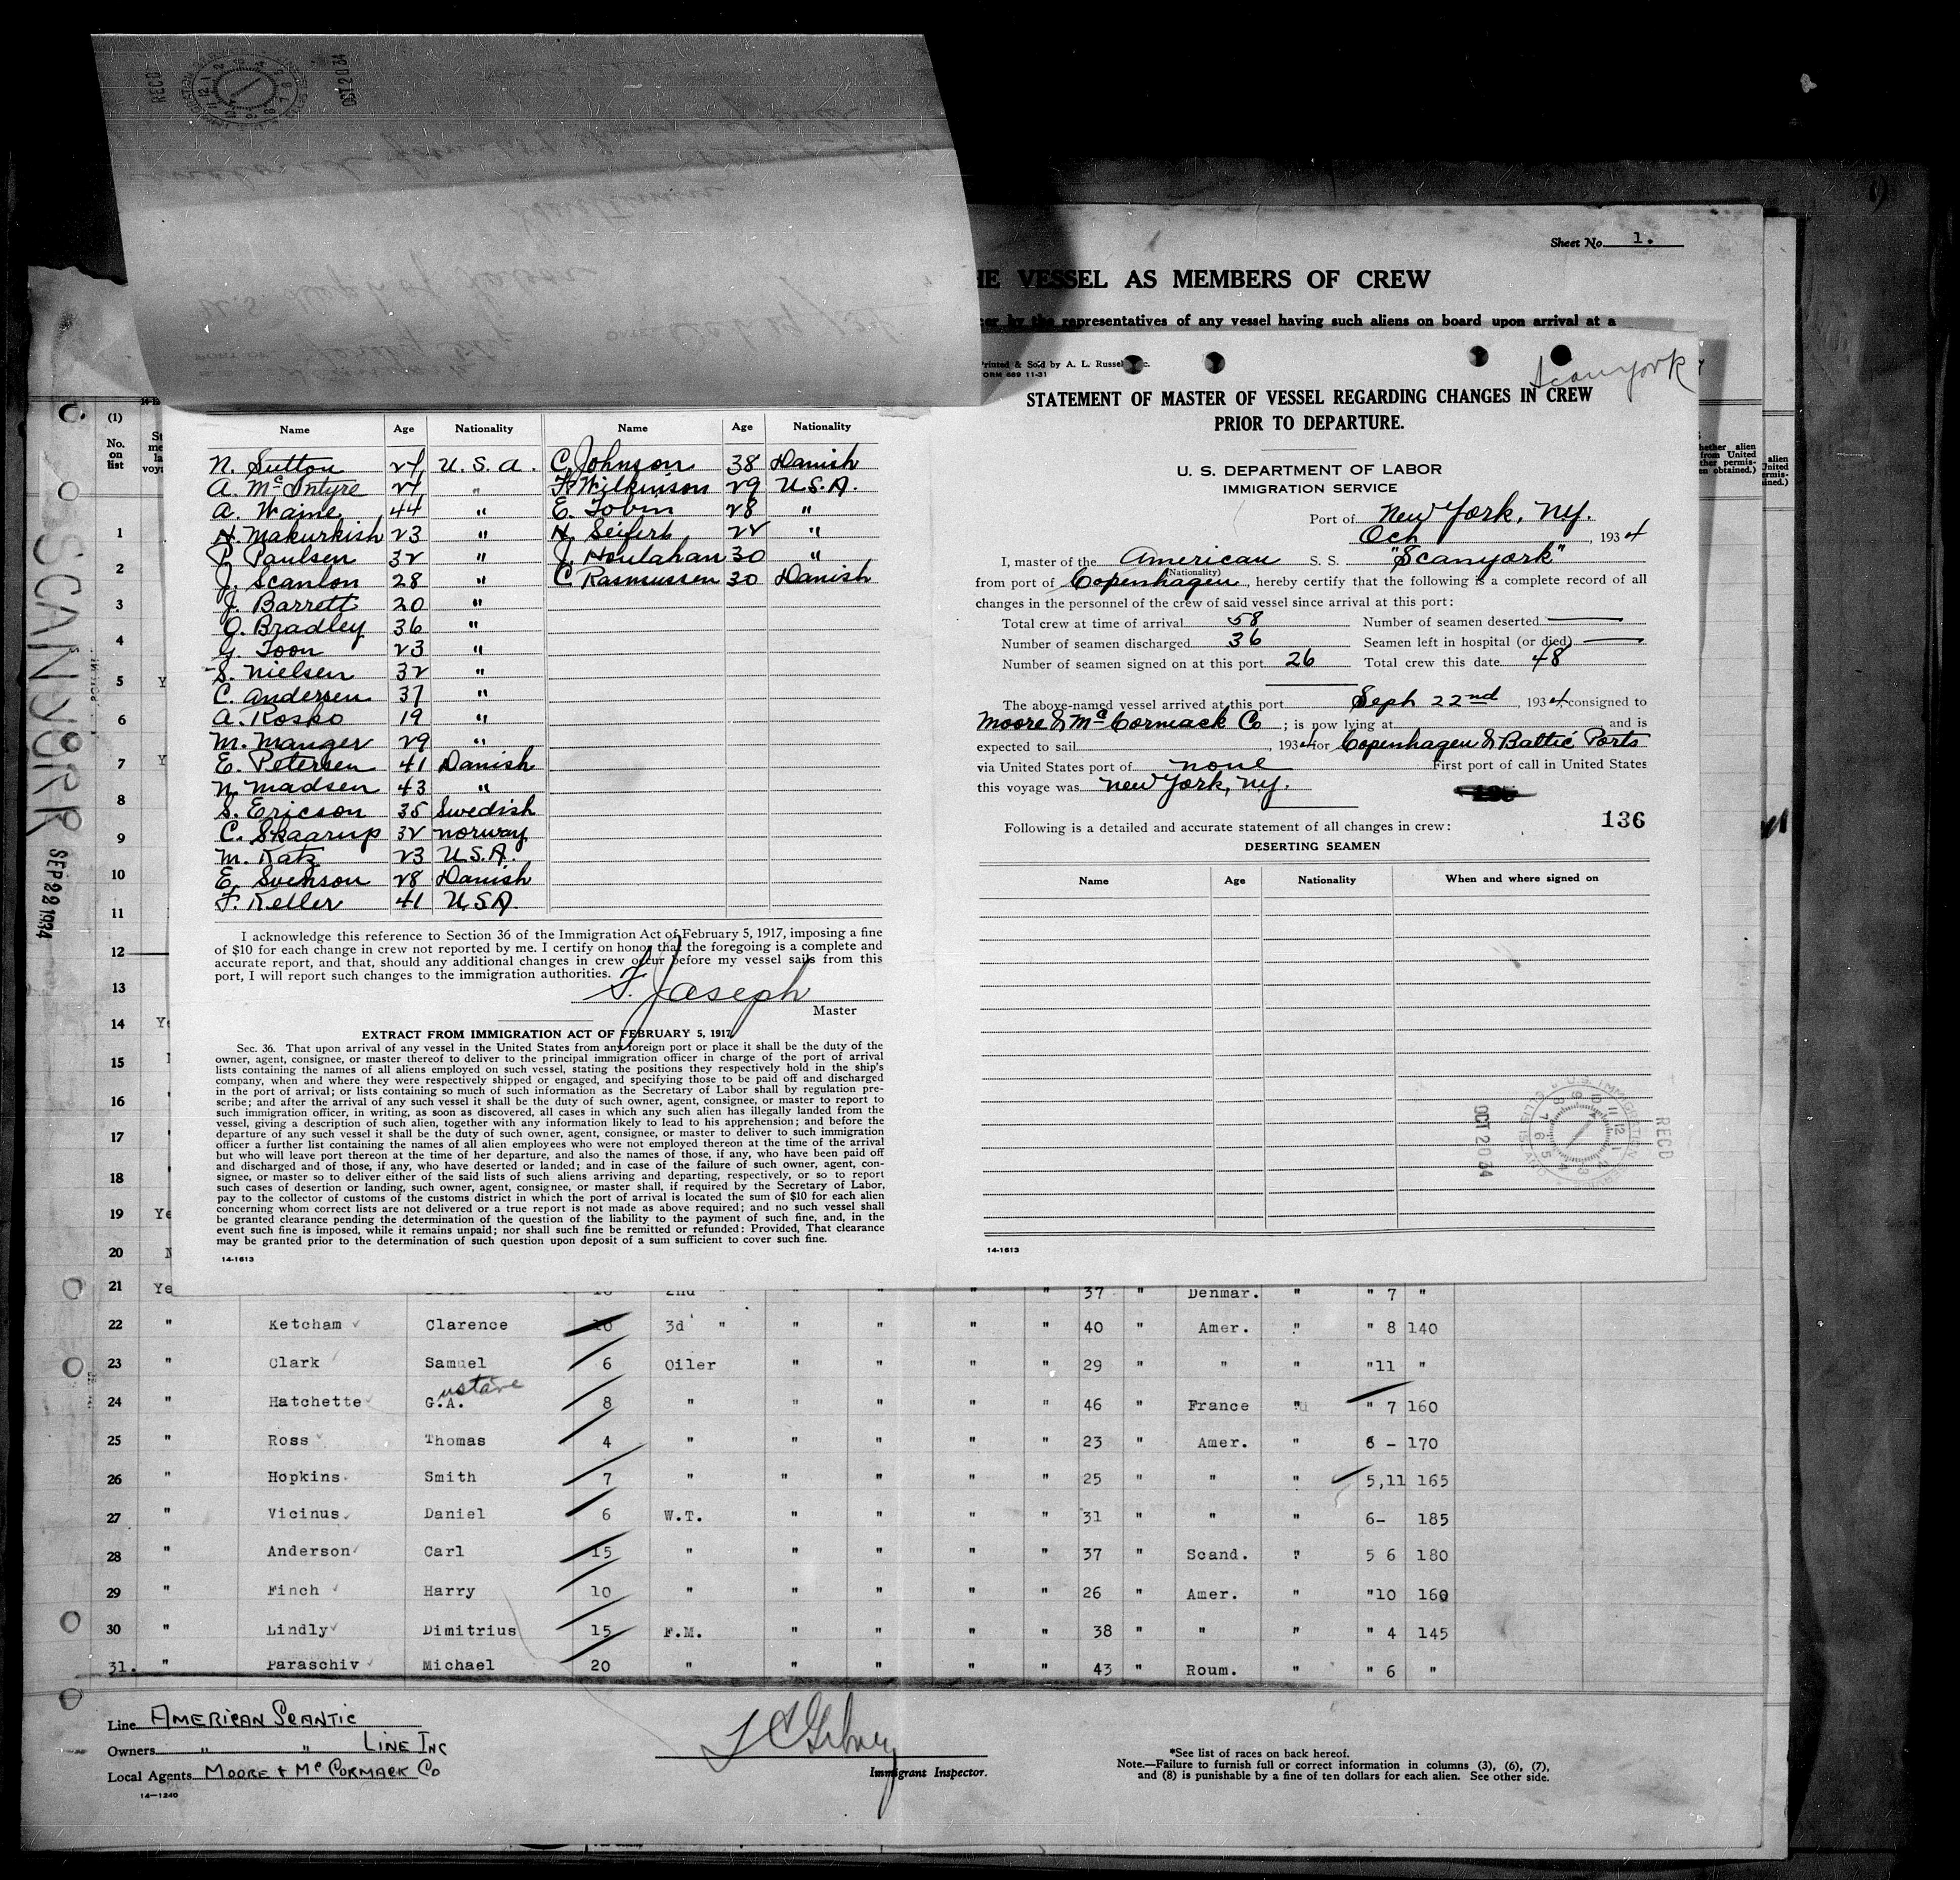 RECD
OCT 20 34
Sheet No. 1.
HE VESSEL AS MEMBERS OF CREW
cer by the representatives of any vessel having such aliens on board upon arrival at a
Scanyork
Printed & Sold by A. L. Russel
FORM 689 11-31
STATEMENT OF MASTER OF VESSEL REGARDING CHANGES IN CREW
PRIOR TO DEPARTURE.
U. S. DEPARTMENT OF LABOR
IMMIGRATION SERVICE
Port of New York, N.Y.
Oct , 1934
I, master of the American S. S. "Scanyork"
(Nationality)
from port of Copenhagen, hereby certify that the following is a complete record of all
changes in the personnel of the crew of said vessel since arrival at this port:
Total crew at time of arrival 58 Number of seamen deserted —
Number of seamen discharged 36 Seamen left in hospital (or died) —
Number of seamen signed on at this port 26 Total crew this date 48
The above-named vessel arrived at this port Sept 22nd, 1934 consigned to
Moore & McCormack Co; is now lying at and is
expected to sail , 1934 for Copenhagen & Baltic Ports
via United States port of none First port of call in United States
this voyage was New York, N.Y.
136
Following is a detailed and accurate statement of all changes in crew:
DESERTING SEAMEN
Name Age Nationality When and where signed on
OCT 20 34
RECD
14-1613
Name Age Nationality Name Age Nationality
N. Sutton 24 U.S.A. C. Johnson 38 Danish
A. McIntyre 24 " F. Wilkinson 29 U.S.A.
A. Waine 44 " E. Tobin 28 "
H. Makurkish 23 " H. Seifert 22 "
P. Paulsen 32 " J. Houlahan 30 "
J. Scanlon 28 " C. Rasmussen 30 Danish
J. Barrett 20 "
O. Bradley 36 "
G. Toon 23 "
S. Nielsen 32 "
C. Andersen 37 "
A. Kosko 19 "
M. Manger 29 "
E. Petersen 41 Danish
N. Madsen 43 "
S. Ericson 35 Swedish
C. Skaarup 32 Norway
M. Katz 23 U.S.A.
E. Svenson 28 Danish
F. Keller 41 U.S.A.
I acknowledge this reference to Section 36 of the Immigration Act of February 5, 1917, imposing a fine
of $10 for each change in crew not reported by me. I certify on honor that the foregoing is a complete and
accurate report, and that, should any additional changes in crew occur before my vessel sails from this
port, I will report such changes to the immigration authorities.
F. Joseph
Master
EXTRACT FROM IMMIGRATION ACT OF FEBRUARY 5, 1917
Sec. 36. That upon arrival of any vessel in the United States from any foreign port or place it shall be the duty of the
owner, agent, consignee, or master thereof to deliver to the principal immigration officer in charge of the port of arrival
lists containing the names of all aliens employed on such vessel, stating the positions they respectively hold in the ship's
company, when and where they were respectively shipped or engaged, and specifying those to be paid off and discharged
in the port of arrival; or lists containing so much of such information as the Secretary of Labor shall by regulation pre-
scribe; and after the arrival of any such vessel it shall be the duty of such owner, agent, consignee, or master to report to
such immigration officer, in writing, as soon as discovered, all cases in which any such alien has illegally landed from the
vessel, giving a description of such alien, together with any information likely to lead to his apprehension; and before the
departure of any such vessel it shall be the duty of such owner, agent, consignee, or master to deliver to such immigration
officer a further list containing the names of all alien employees who were not employed thereon at the time of the arrival
but who will leave port thereon at the time of her departure, and also the names of those, if any, who have been paid off
and discharged and of those, if any, who have deserted or landed; and in case of the failure of such owner, agent, con-
signee, or master so to deliver either of the said lists of such aliens arriving and departing, respectively, or so to report
such cases of desertion or landing, such owner, agent, consignee, or master shall, if required by the Secretary of Labor,
pay to the collector of customs of the customs district in which the port of arrival is located the sum of $10 for each alien
concerning whom correct lists are not delivered or a true report is not made as above required; and no such vessel shall
be granted clearance pending the determination of the question of the liability to the payment of such fine, and, in the
event such fine is imposed, while it remains unpaid; nor shall such fine be remitted or refunded: Provided, That clearance
may be granted prior to the determination of such question upon deposit of a sum sufficient to cover such fine.
14-1613
SS SCANYORK
SEP 22 1934
(1)
No.
on
list
1
2
3
4
5
6
7
8
9
10
11
12
13
14
15
16
17
18
19
20
21 Ye 2nd " " " " 37 " Denmar. " " 7 "
22 " Ketcham Clarence 10 3d " " " " " 40 " Amer. " " 8 140
23 " Clark Samuel 6 Oiler " " " " 29 " " " "11 "
24 " Hatchette G.A. ustave 8 " " " " " 46 " France " " 7 160
25 " Ross Thomas 4 " " " " " 23 " Amer. " 6 - 170
26 " Hopkins Smith 7 " " " " " 25 " " " 5,11 165
27 " Vicinus Daniel 6 W.T. " " " " 31 " " " 6- 185
28 " Anderson Carl 15 " " " " " 37 " Scand. " 5 6 180
29 " Finch Harry 10 " " " " " 26 " Amer. " "10 160
30 " Lindly Dimitrius 15 F.M. " " " " 38 " " " " 4 145
31. " Paraschiv Michael 20 " " " " " 43 " Roum. " " 6 "
Line AMERICAN SCANTIC
Owners " " LINE INC
Local Agents MOORE & McCORMACK CO
14-1240
Immigrant Inspector.
*See list of races on back hereof.
Note.—Failure to furnish full or correct information in columns (3), (6), (7),
and (8) is punishable by a fine of ten dollars for each alien. See other side.